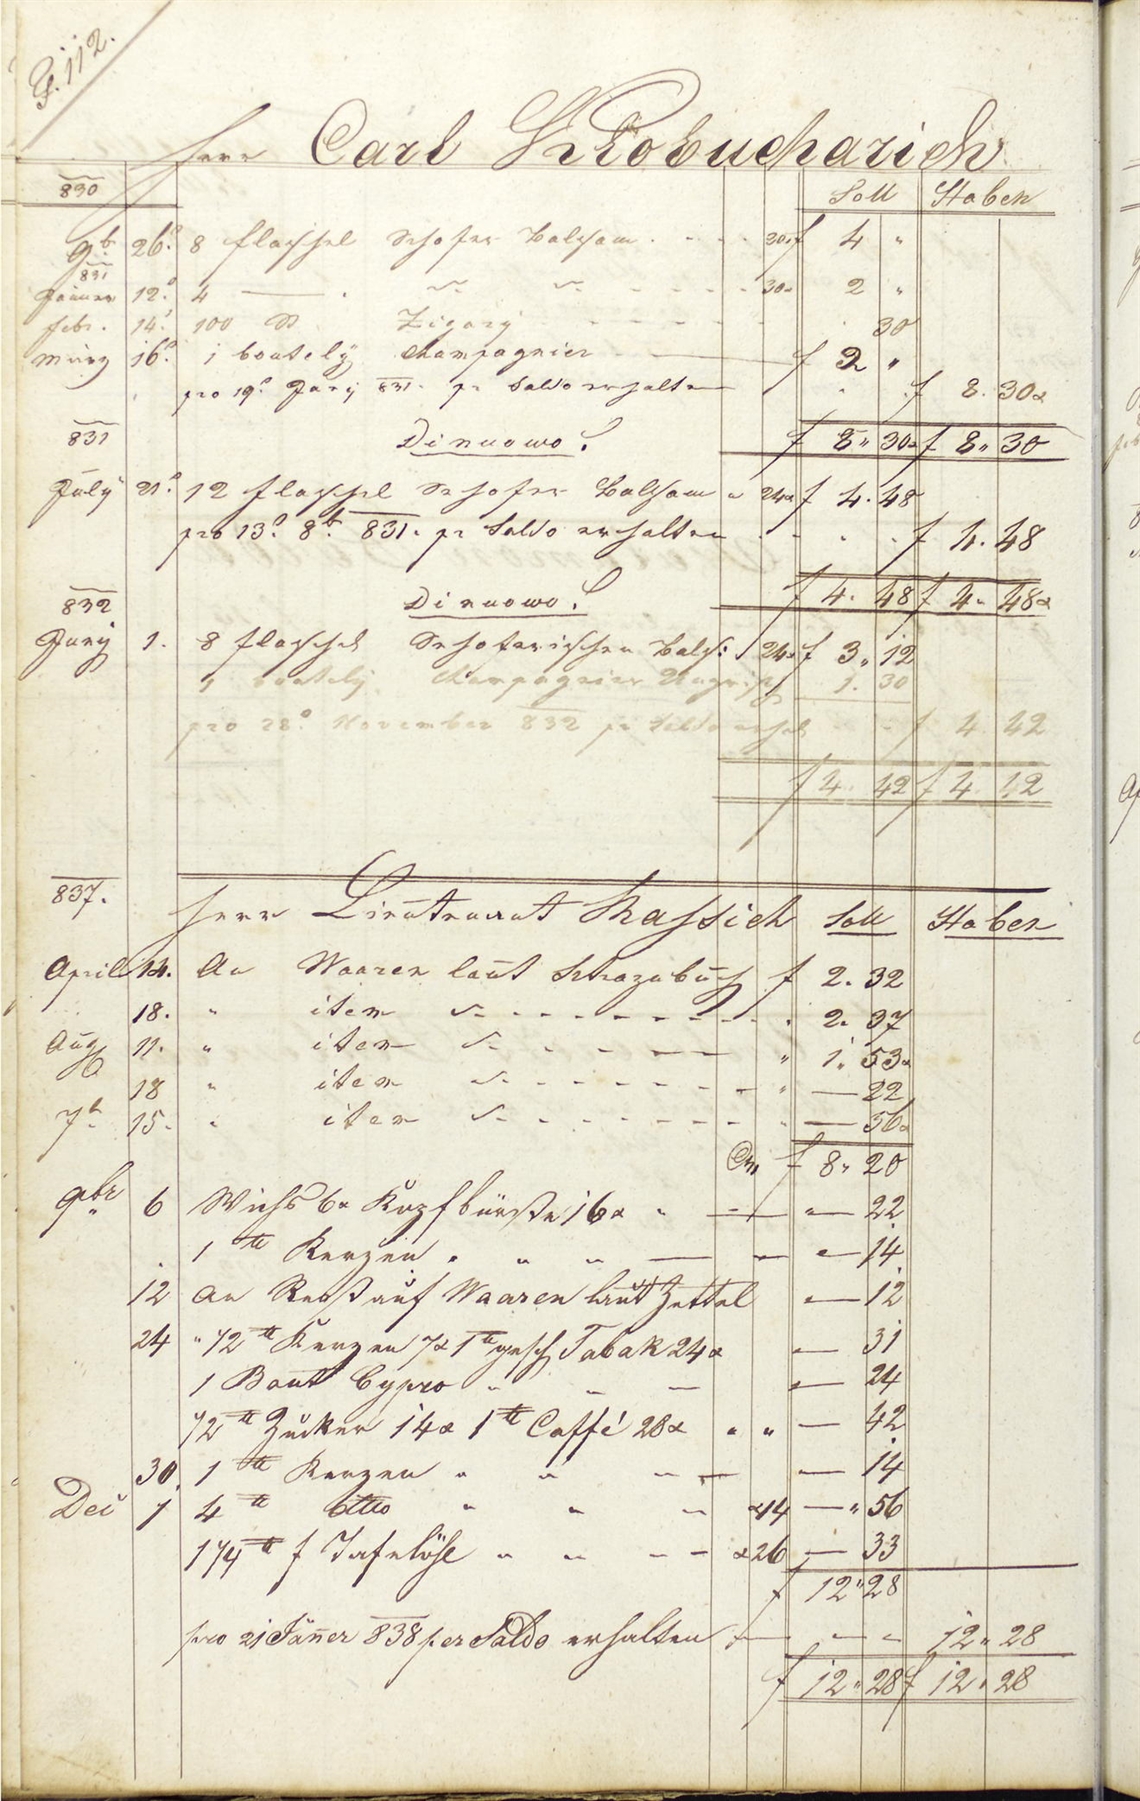 112.
Herr Carl Skrobucharich
830 Soll Haben
9b. 26. 8 flaschel Schofer Balsam . . . . 30x f 4 "
831
Jänner 12. 4 — . . . . 30x 2 "
febr. 14. 100 St Zigary - - - - - 30
März 16. 1 boutely Champagnier f 2 "
pro 19. Juny 831. pr Saldo erhalten f 8. 30x
f 8 " 30x f 8 " 30
831 Dinuowo.
July 21. 12 flaschel Schofer Balsam a 24x f 4. 48
pro 13. 8b. 831. pr Saldo erhalten . . . . f 4. 48
f 4. 48 f 4. 48x
832 Dinuowo.
Juny 1. 8 flaschel Schoferischen Bals: 24x f 3 " 12
1 boutely Champagnier 1. 30
pro 28. November 832 pr Saldo erhal - - f 4 42
f 4. 42 f 4. 42
837.
Herr Lieutenant Rassich Soll Haben
April 14. An Waaren laut Strazabuch f 2. 32
18. " item - - - - - - - 2. 37
Aug 11. " item - - - " 1. 53x
18 " item - - - - - - - " — 22
7b. 15. " item - - - - - - - " — 56x
Cm f 8 " 20
9br 6 Wichs 6x Kopfbürste 16x " — — 22
1 ℔ Kerzen " " " — — — 14
12 An Rest auf Waaren laut Zettel — 12
24 " 1/2 ℔ Kerzen 7x 1 ℔ gesch Tabak 24x — 31
1 Bout Cypro " " — — 24
1/2 ℔ Zucker 14x 1 ℔ Caffé 28x " " — 42
30 1 ℔ Kerzen " " " — — 14
Dec 1 4 ℔ detto " " " x14 — " 56
1 1/4 ℔ f Tafelöhl " " — — x26 — 33
f 12 " 28
pro 21 Jänner 838 per Saldo erhalten — — — 12 " 28
f 12 " 28 f 12 " 28